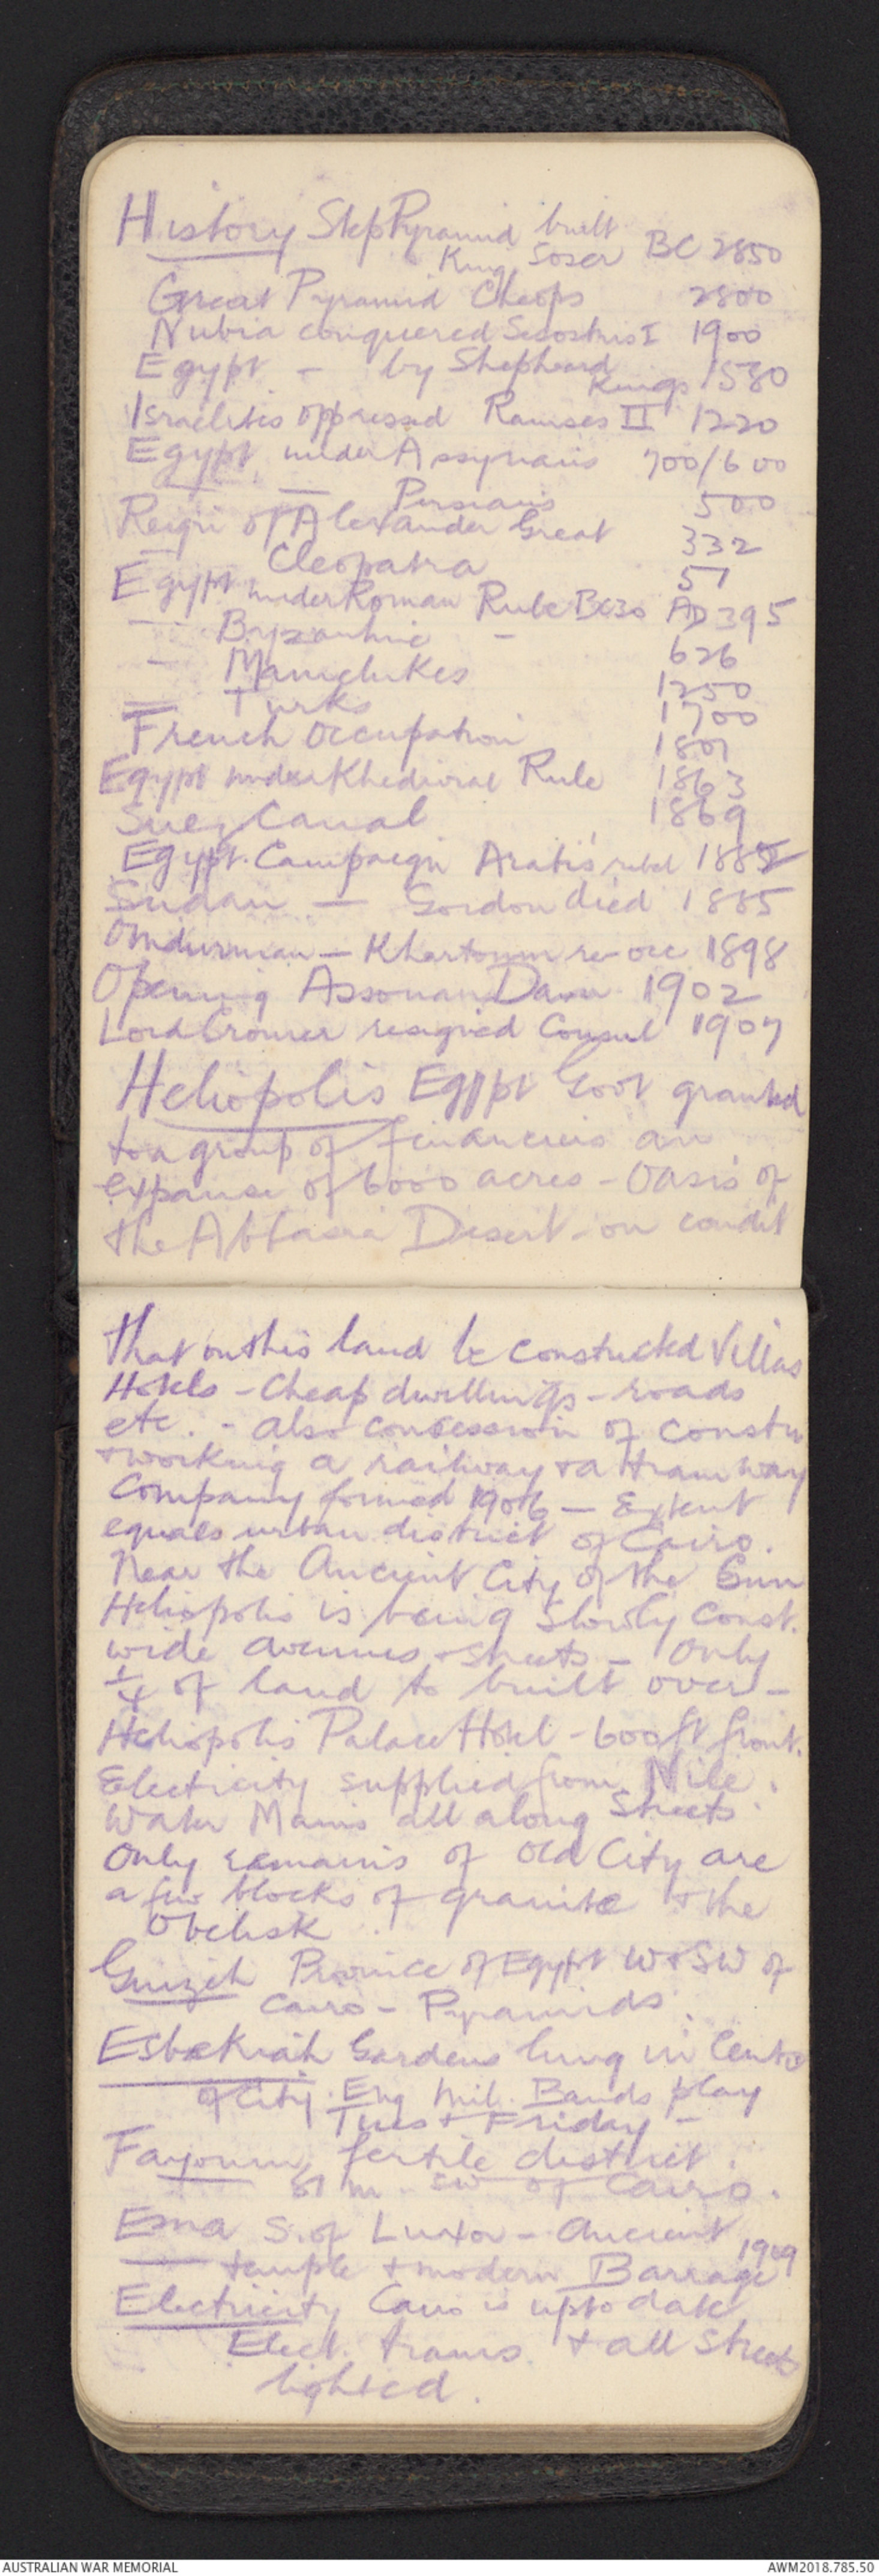 History Step Pyramid built
King Soser BC 2850
Great Pyramid Cheops 2800
Nubia conquered Sesostris I 1900
Egypt - by Shepherd
Kings 1580
Israelites oppressed Ramses II 1220
Egypt under Assyrians 700/600
— — Persians 500
Reign of Alexander Great 332
— Cleopatra 51
Egypt under Roman Rule BC30 AD 395
— Byzantine - 626
— Mamelukes 1250
= Turks 1700
French Occupation 1801
Egypt under Khedivial Rule 1863
Suez Canal 1869
Egypt. Campaign Arabi's rebel 1882
Sudan — Gordon died 1885
Omdurman - Khartoum re-occ 1898
Opening Assouan Dam 1902
Lord Cromer resigned Consul 1907
Heliopolis Egypt Govt granted
to a group of financiers an
expanse of 6000 acres - Oasis of
the Abbasia Desert - on condit
that on this land be constructed Villas
Hotels - Cheap dwellings - roads
etc. - also concession of constr
+ working a railway + a tramway
Company formed 1906 — Extent
equals urban district of Cairo.
Near the Ancient City of the Sun
Heliopolis is being slowly const.
wide avenues + streets - Only
1/4 of land to built over -
Heliopolis Palace Hotel - 600 ft front.
Electricity supplied from Nile.
Water Mains all along Streets.
Only remains of Old City are
a few blocks of granite + the
Obelisk
Guizeh Province of Egypt W + SW of
Cairo - Pyramids.
Esbekiah Gardens lung in Centre
of City. Eng Mil. Bands play
Tues + Friday -
Fayoum fertile district.
81 m. SW of Cairo.
Esna S. of Luxor - ancient
temple + modern Barrage 1909
Electricity Cairo is up to date
Elect. trams. + all Streets
lighted.
AUSTRALIAN WAR MEMORIAL
AWM2018.785.50